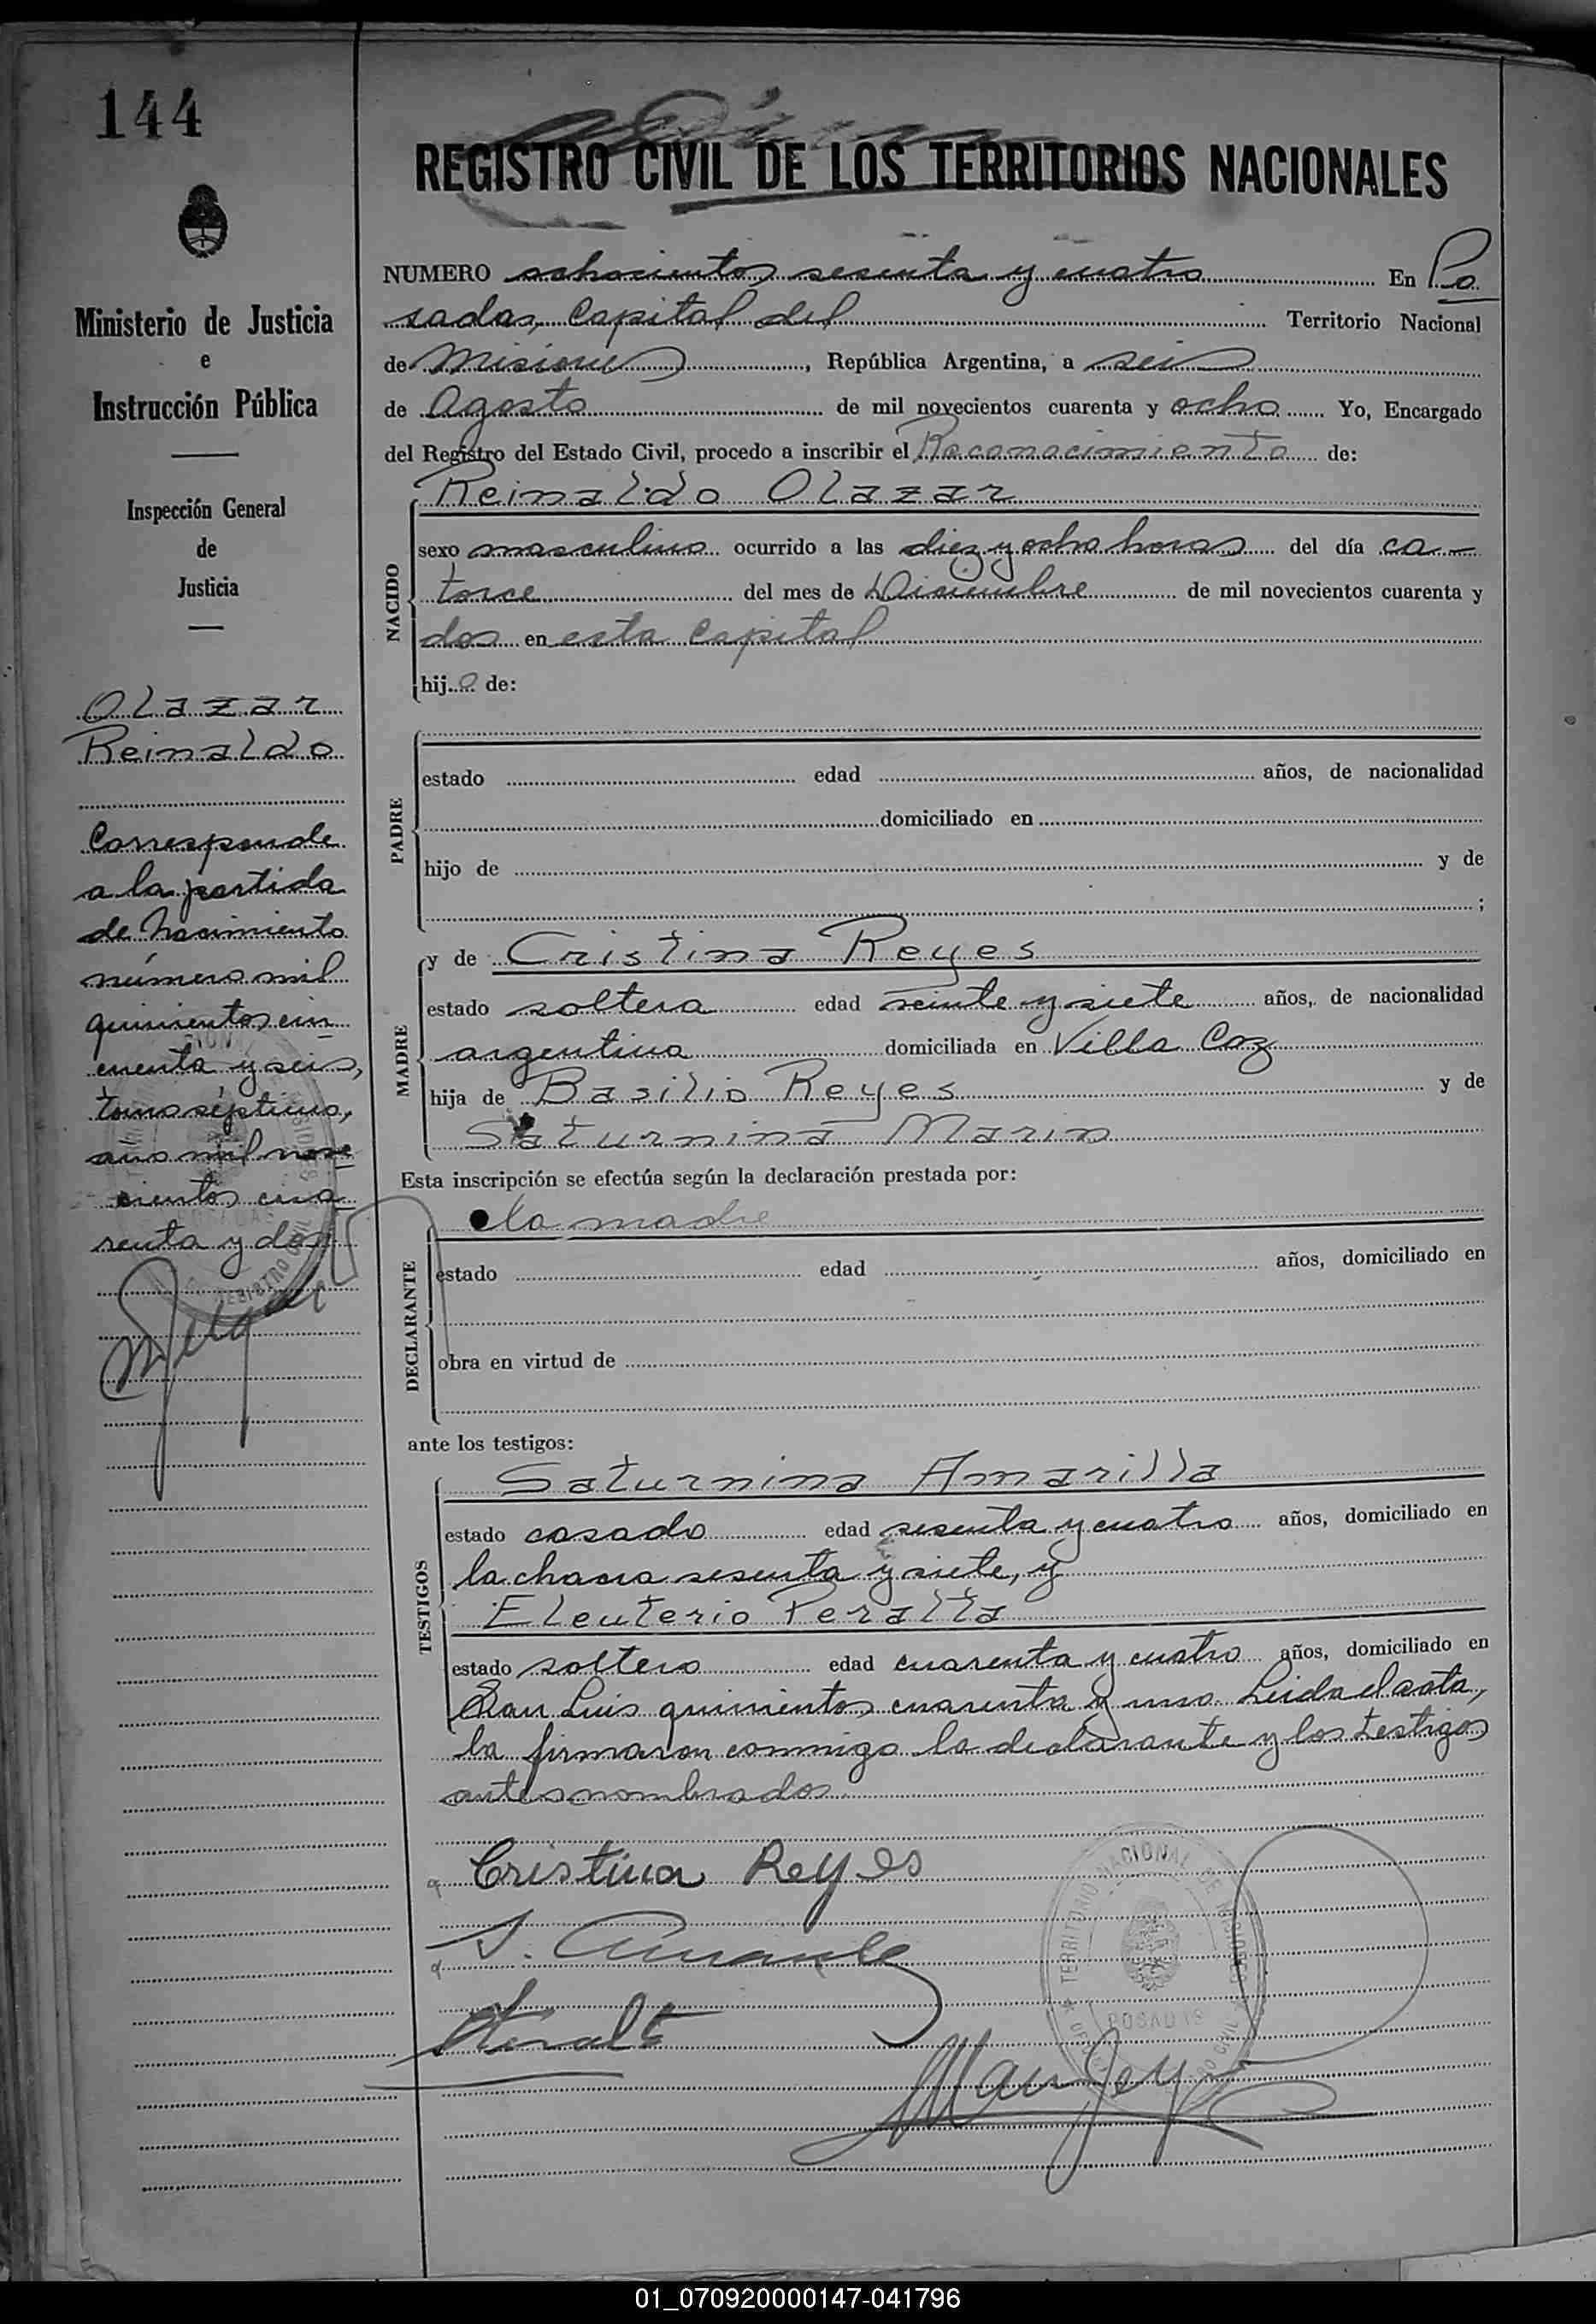 144
REGISTRO CIVIL DE LOS TERRITORIOS NACIONALES
Ministerio de Justicia
e
Instrucción Pública
Inspección General
de
Justicia
Olazar
Reinaldo
Corresponde
a la partida
de Nacimiento
número mil
quinientos cin
cuenta y seis,
tomo séptimo,
año mil nove
cientos cua
renta y dos
NUMERO ochocientos sesenta y cuatro En Po
sadas, Capital del Territorio Nacional
de Misiones, República Argentina, a seis
de Agosto de mil novecientos cuarenta y ocho Yo, Encargado
del Registro del Estado Civil, procedo a inscribir el Reconocimiento de:
Reinaldo Olazar
NACIDO
sexo masculino ocurrido a las diez y ocho horas del día ca-
torce del mes de Diciembre de mil novecientos cuarenta y
dos en esta Capital
hijo de:
PADRE
estado edad años, de nacionalidad
domiciliado en
hijo de y de
;
MADRE
y de Cristina Reyes
estado soltera edad veinte y siete años, de nacionalidad
argentina domiciliada en Villa Coz
hija de Basilio Reyes y de
Saturnina Marin
Esta inscripción se efectúa según la declaración prestada por:
DECLARANTE
la madre
estado edad años, domiciliado en
obra en virtud de
ante los testigos:
TESTIGOS
Saturnina Amarilla
estado casado edad sesenta y cuatro años, domiciliado en
la chacra sesenta y siete, y
Eleuterio Peralta
estado soltero edad cuarenta y cuatro años, domiciliado en
San Luis quinientos cuarenta y uno. Leida el acta,
la firmaron conmigo la declarante y los testigos
antes nombrados.
Cristina Reyes
TERRITORIO NACIONAL DE MISIONES
POSADAS
01_070920000147-041796